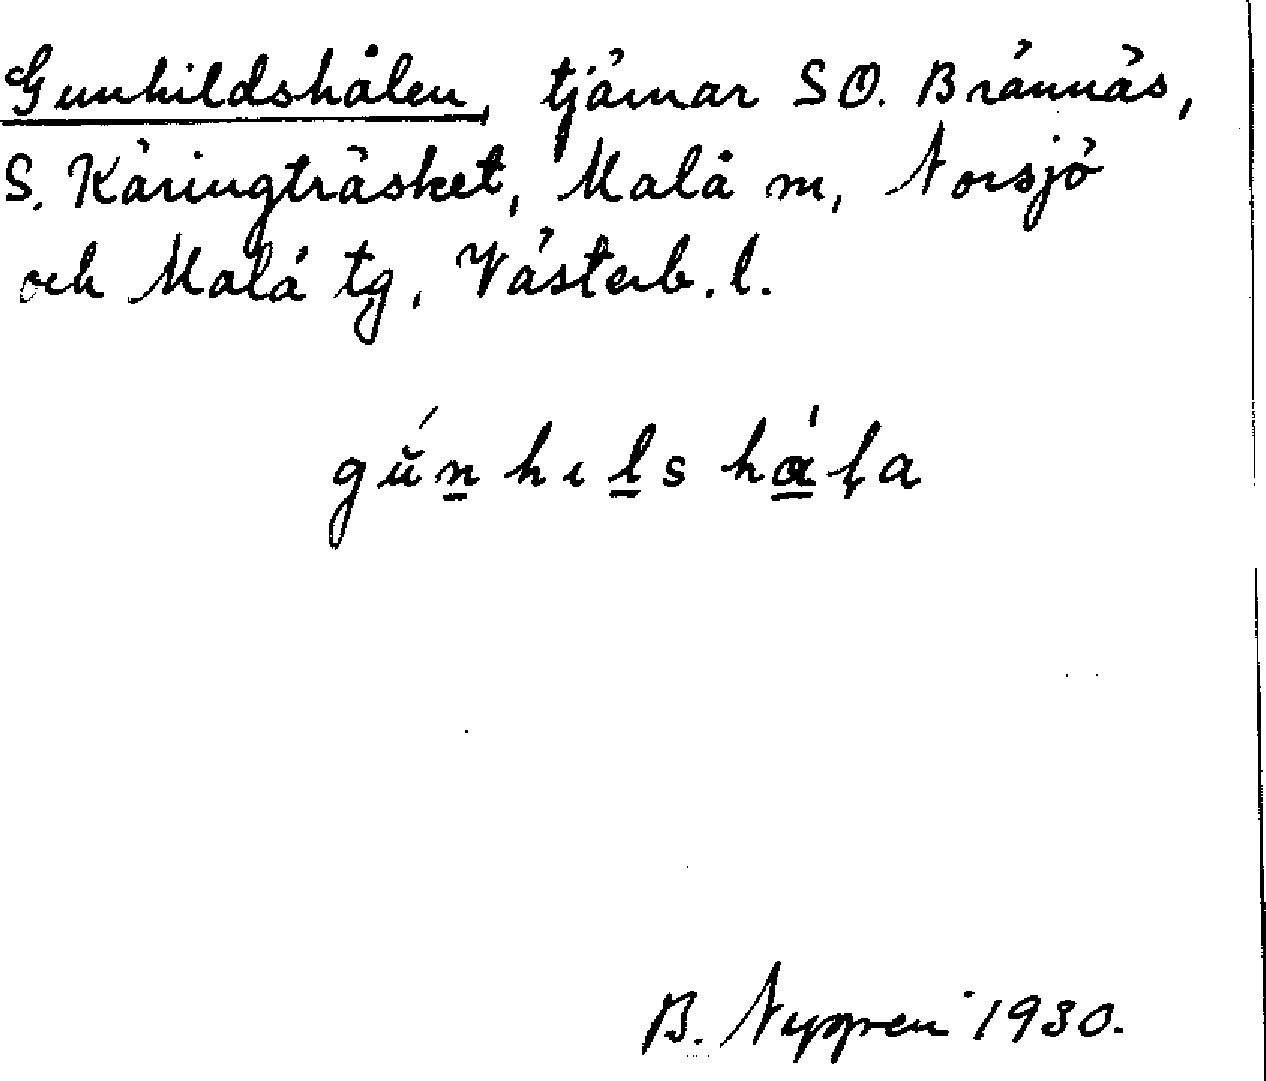 Gunhildshålen, tjärnar SO. Brännäs,
S. Käringträsket, Malå m, Norsjö
och Malå tg, Västerb. l.
gŭ́n̲hıl̲shɑ̲́ḷa
B. Nygren 1930.